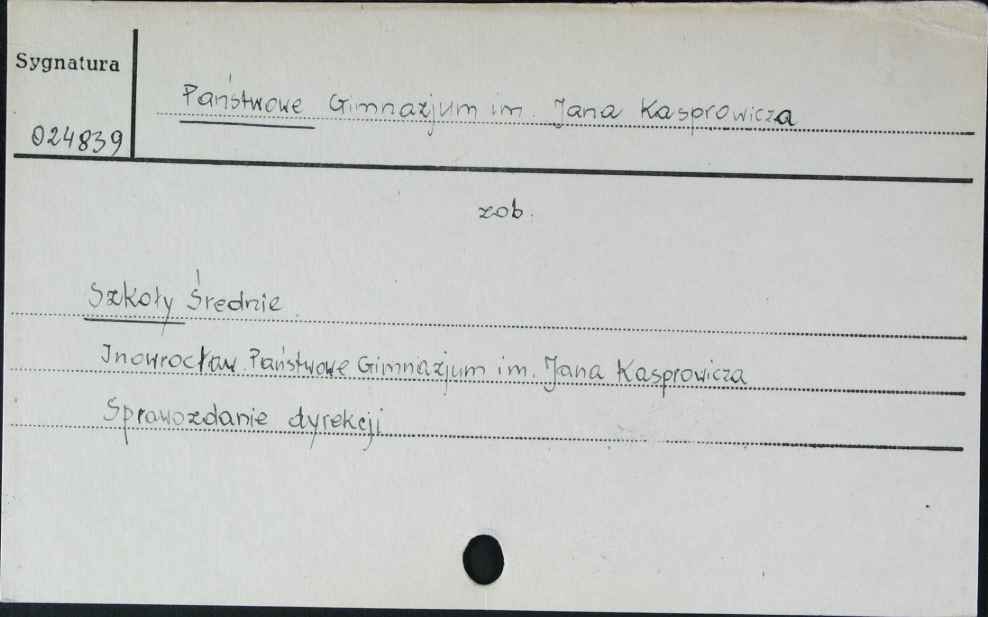 Sygnatura
Państwowe Gimnazjum im. Jana Kasprowicza
024839
zob.
Szkoły Średnie.
Inowrocław. Państwowe Gimnazjum im. Jana Kasprowicza
Sprawozdanie dyrekcji